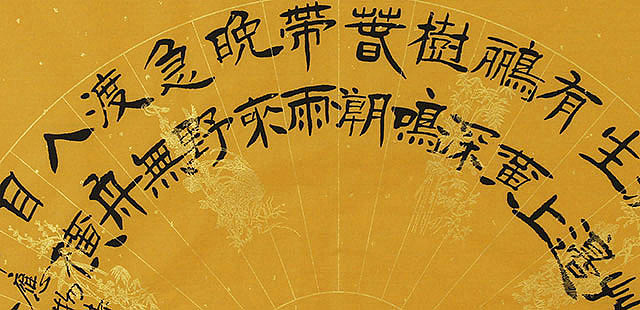 邊
生上
有黃
鸝深
樹鳴
春潮
帶雨
晚來
急野
渡無
人舟
自橫
應物